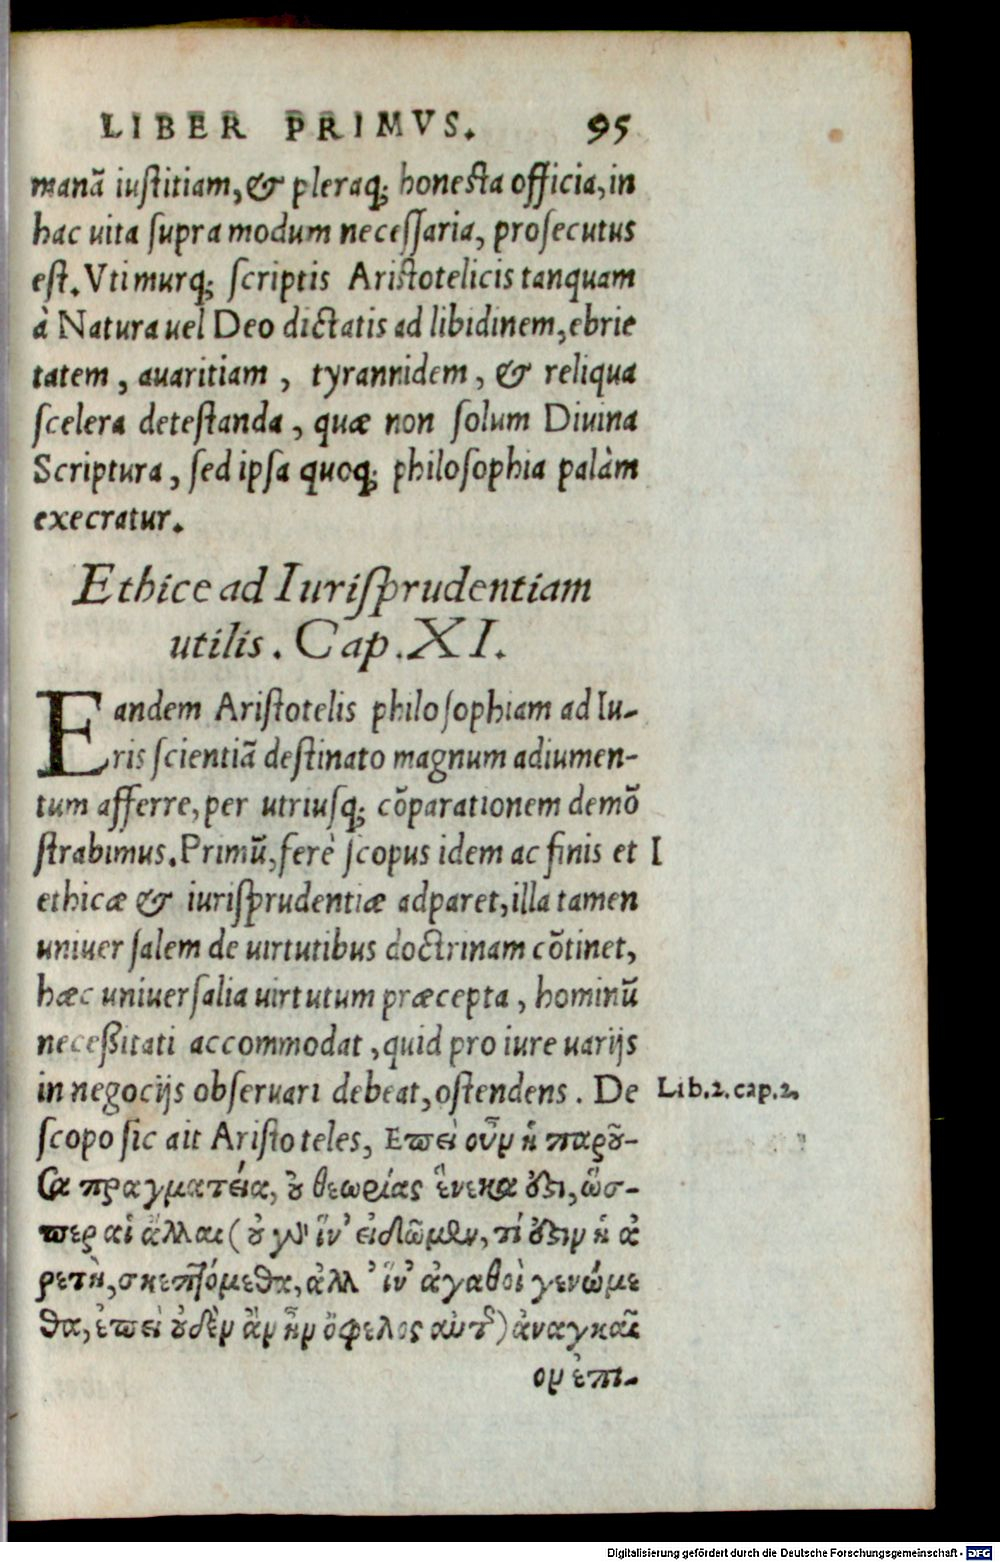 LIBER PRIMVS. 95
manā iustitiam, & pleraq; honesta officia, in
hac uita supra modum necessaria, prosecutus
est. Vtimurq; scriptis Aristotelicis tanquam
à Natura uel Deo dictatis ad libidinem, ebrie
tatem, auaritiam, tyrannidem, & reliqua
scelera detestanda, quæ non solum Diuina
Scriptura, sed ipsa quoq; philosophia palàm
execratur.
Ethice ad Iurisprudentiam
utilis. Cap. XI.
Eandem Aristotelis philosophiam ad Iu-
ris scientiā destinato magnum adiumen-
tum afferre, per utriusq; cōparationem demō
strabimus. Primū, ferè scopus idem ac finis et I
ethicæ & iurisprudentiæ adparet, illa tamen
uniuersalem de uirtutibus doctrinam cōtinet,
hæc uniuersalia uirtutum præcepta, hominū
neceßitati accommodat, quid pro iure uarijs
in negocijs obseruari debeat, ostendens. De Lib.2.cap.2.
scopo sic ait Aristoteles, Επεὶ οὖν ἡ παροῦ-
σα πραγματεία, οὐ θεωρίας ἕνεκα ὅστι, ὥσ-
περ αἱ ἄλλαι (οὐ γὰρ ἵν' εἰδῶμεν, τί ὅστιν ἡ ἀ
ρετὴ, σκεπτόμεθα, ἀλλ' ἵν' ἀγαθοὶ γενώμε
θα, ἐπεὶ οὐδὲν ἂν ἦν ὄφελος αὐτῆς) ἀναγκαῖ
ον ἐπι-
Digitalisierung gefördert durch die Deutsche Forschungsgemeinschaft - DFG